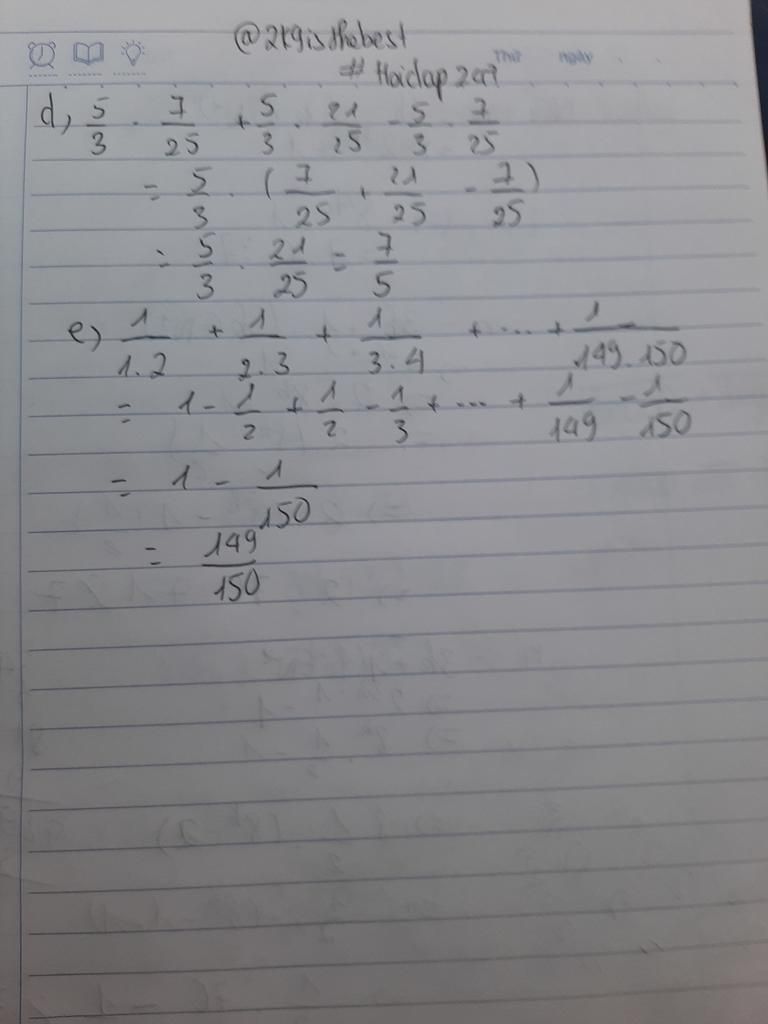 @2k9isthebest
# Hoidap 247
Thứ Ngày
d, 5/3 . 7/25 + 5/3 . 21/25 - 5/3 . 7/25
= 5/3 . ( 7/25 + 21/25 - 7/25 )
= 5/3 . 21/25 = 7/5
e) 1/1.2 + 1/2.3 + 1/3.4 + ... + 1/149.150
= 1 - 1/2 + 1/2 - 1/3 + ... + 1/149 - 1/150
= 1 - 1/150
= 149/150